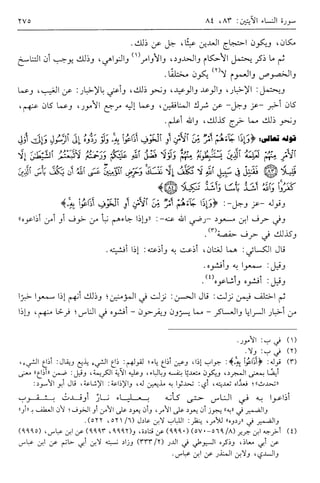 سورة النساء الآيتين: ٨٣، ٨٤ ٢٧٥
مكان، ويكون احتجاج العدين عبثًا، جل عن ذلك.
ثم ما ذكر يحتمل الأحكام والحدود، والأوامر(١) والنواهي، وذلك يوجب أن التناسخ
والخصوص والعموم لا(٢) يكون مختلفًا.
ويحتمل: الإخبار، والوعد والوعيد، ونحو ذلك، وأعني بالإخبار: عن الغيب، وعما
كان أخبر -عز وجل- عن شرك المنافقين، وعما إليه مرجع الأمور، وعما كان عنهم،
ونحو ذلك مما خرج كذلك، والله أعلم.
قوله تعالى: ﴿وَإِذَا جَاءَهُمْ أَمْرٌ مِنَ الْأَمْنِ أَوِ الْخَوْفِ أَذَاعُوا بِهِ وَلَوْ رَدُّوهُ إِلَى الرَّسُولِ وَإِلَى أُولِي
الْأَمْرِ مِنْهُمْ لَعَلِمَهُ الَّذِينَ يَسْتَنْبِطُونَهُ مِنْهُمْ وَلَوْلَا فَضْلُ اللَّهِ عَلَيْكُمْ وَرَحْمَتُهُ لَاتَّبَعْتُمُ الشَّيْطَانَ إِلَّا
قَلِيلًا فَقَاتِلْ فِي سَبِيلِ اللَّهِ لَا تُكَلَّفُ إِلَّا نَفْسَكَ وَحَرِّضِ الْمُؤْمِنِينَ عَسَى اللَّهُ أَنْ يَكُفَّ بَأْسَ الَّذِينَ
كَفَرُوا وَاللَّهُ أَشَدُّ بَأْسًا وَأَشَدُّ تَنْكِيلًا﴾
وقوله -عز وجل-: ﴿وَإِذَا جَاءَهُمْ أَمْرٌ مِنَ الْأَمْنِ أَوِ الْخَوْفِ أَذَاعُوا بِهِ﴾
وفي حرف ابن مسعود -رضي الله عنه-: «وإذا جاءهم نبأ من خوف أو أمن أذاعوه»
وكذلك في حرف حفصة(٣).
قال الكسائي: هما لغتان، أذعت به وأذعته: إذا أفشيته.
وقيل: سمعوا به وأفشوه.
وقيل: أفشوه وأشاعوه(٤).
ثم اختلف فيمن نزلت: قال الحسن: نزلت في المؤمنين؛ وذلك أنهم إذا سمعوا خبرًا
من أخبار السرايا والعساكر - مما يسرّون ويفرحون - أفشوه في الناس؛ فرحًا منهم، وإذا
(١) في ب: الأمور.
(٢) في ب: ولا.
(٣) قوله: ﴿أَذَاعُوا بِهِ﴾: جواب إذا، وعين أذاع ياء؛ لقولهم: ذاع الشيء يذيع ويقال: أذاع الشيء،
أيضًا بمعنى المجرد، ويكون متعديًا بنفسه وبالباء، وعليه الآية الكريمة، وقيل: ضمن «أذاع» معنى
«تحدث»؛ فعدّاه تعديته، أي: تحدثوا به مذيعين له، والإذاعة: الإشاعة، قال أبو الأسود:
أذاعوا به في الناس حتى كأنه بعلياء نار أوقدت بثقوب
والضمير في «به» يجوز أن يعود على الأمر، وأن يعود على الأمن أو الخوف؛ لأن العطف بـ«أو»
والضمير في «ردوه» للأمر، ينظر: اللباب لابن عادل (٥٢١/٦، ٥٢٢).
(٤) أخرجه ابن جرير (٥٦٩/٨-٥٧٠) (٩٩٩٠) عن قتادة، و(٩٩٩٢، ٩٩٩٣) عن ابن عباس، (٩٩٩٥)
عن أبي معاذ، وذكره السيوطي في الدر (٣٣٣/٢) وزاد نسبته لابن أبي حاتم عن ابن عباس
والسدي، ولابن المنذر عن ابن عباس.